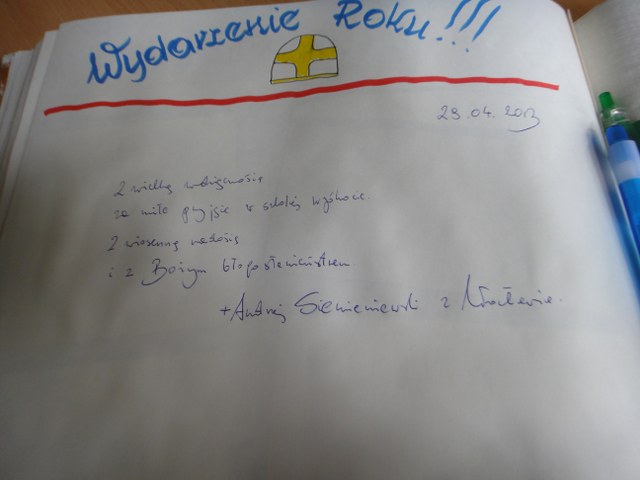 Wydarzenie Roku!!!
29.04.2013
Z wielką wdzięcznością
za miłe przyjęcie w szkolnej wspólnocie.
Z wiosenną radością
i z Bożym błogosławieństwem
+Andrzej Siemieniewski z Wrocławia.